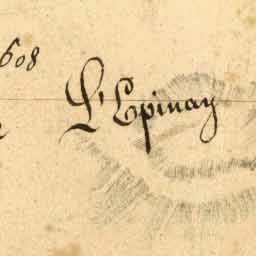 608
L'Epinay